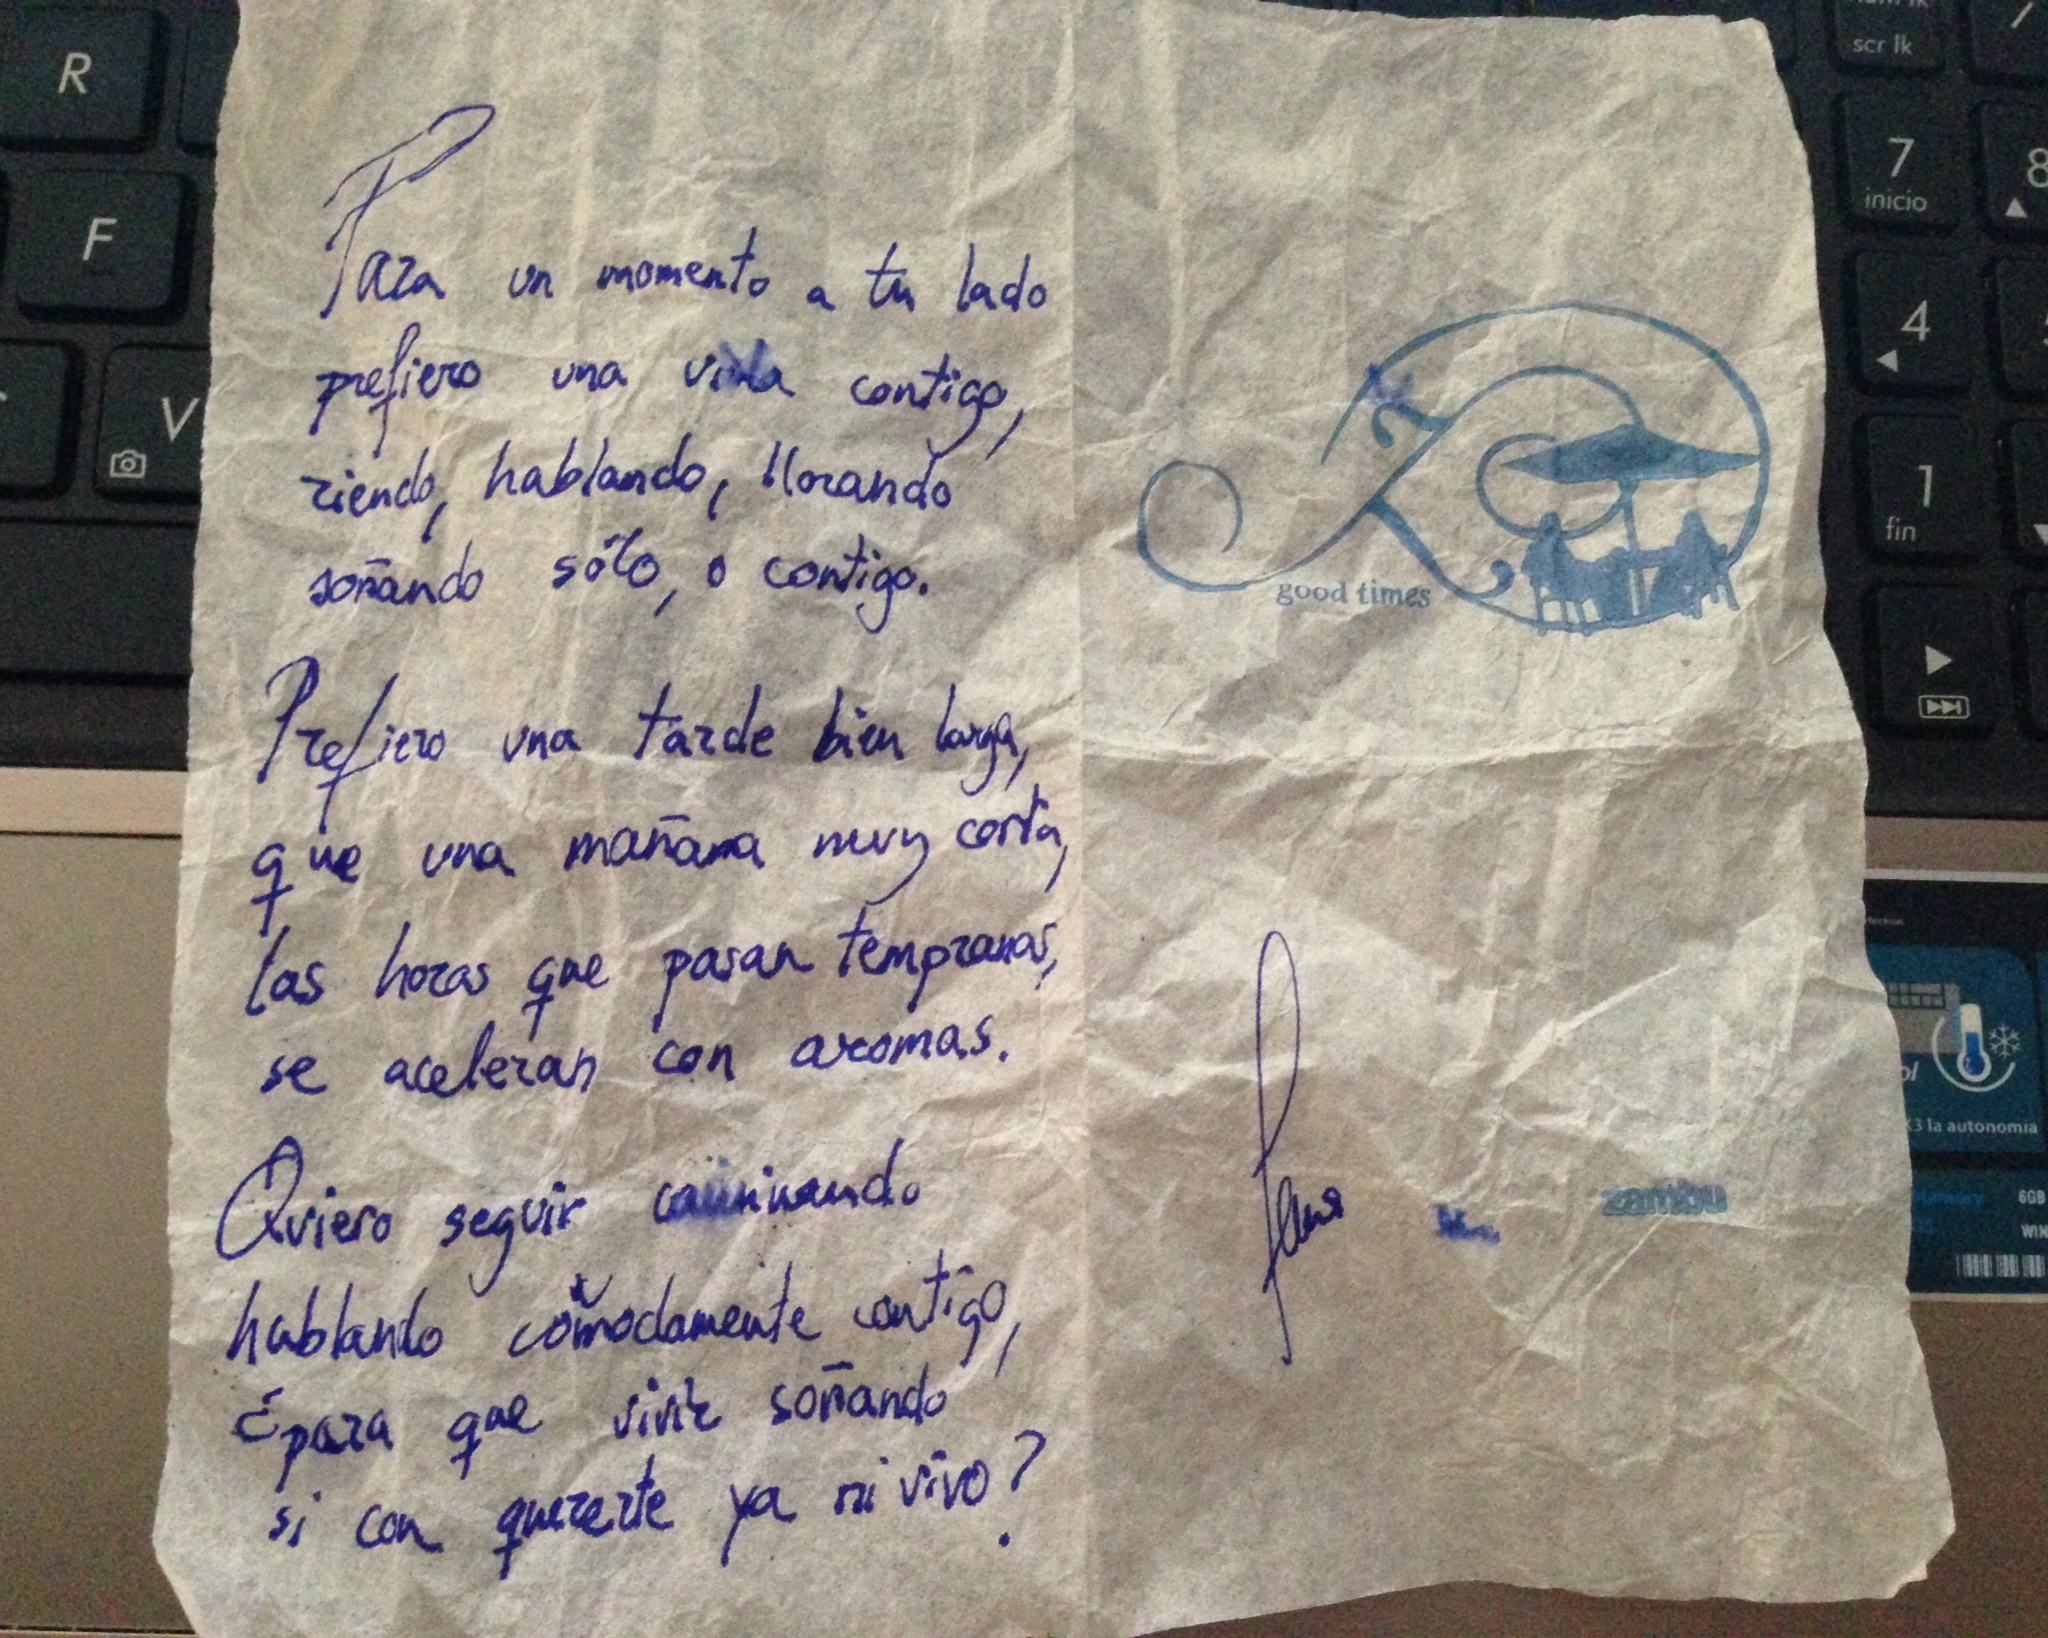 Para un momento a tu lado
prefiero una vida contigo,
riendo, hablando, llorando
soñando sólo, o contigo.
Prefiero una tarde bien larga,
que una mañana muy corta,
las horas que pasan tempranas,
se aceleran con aromas.
Quiero seguir caminando
hablando cómodamente contigo,
¿para que vivir soñando
si con quererte ya ni vivo?
good times
zambu
R
F
V
scr lk
7
inicio
8
4
1
fin
ol
X3 la autonomía
6GB
WIN